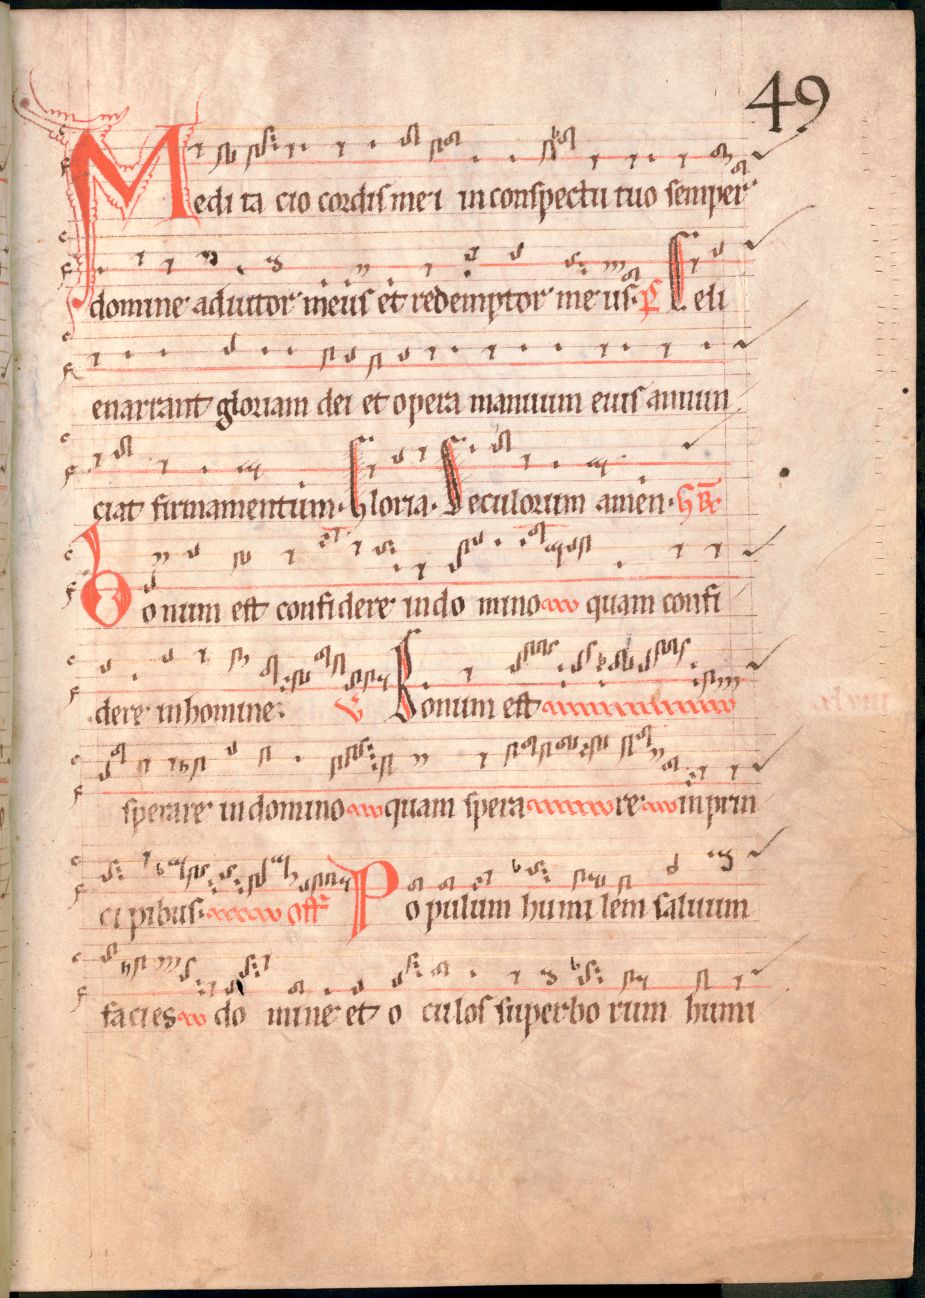 49
Medi ta cio cordis me i in conspectu tuo semper
domine adiutor meus et redemptor me us. ps Celi
enarrant gloriam dei et opera manuum eius annun
ciat firmamentum. Gloria. Seculorum amen. GR
Bonum est confidere in do mino quam confi
dere in homine. V Bonum est
sperare in domino quam spera re in prin
ci pibus. off Populum humi lem saluum
facies do mine et o culos superbo rum humi